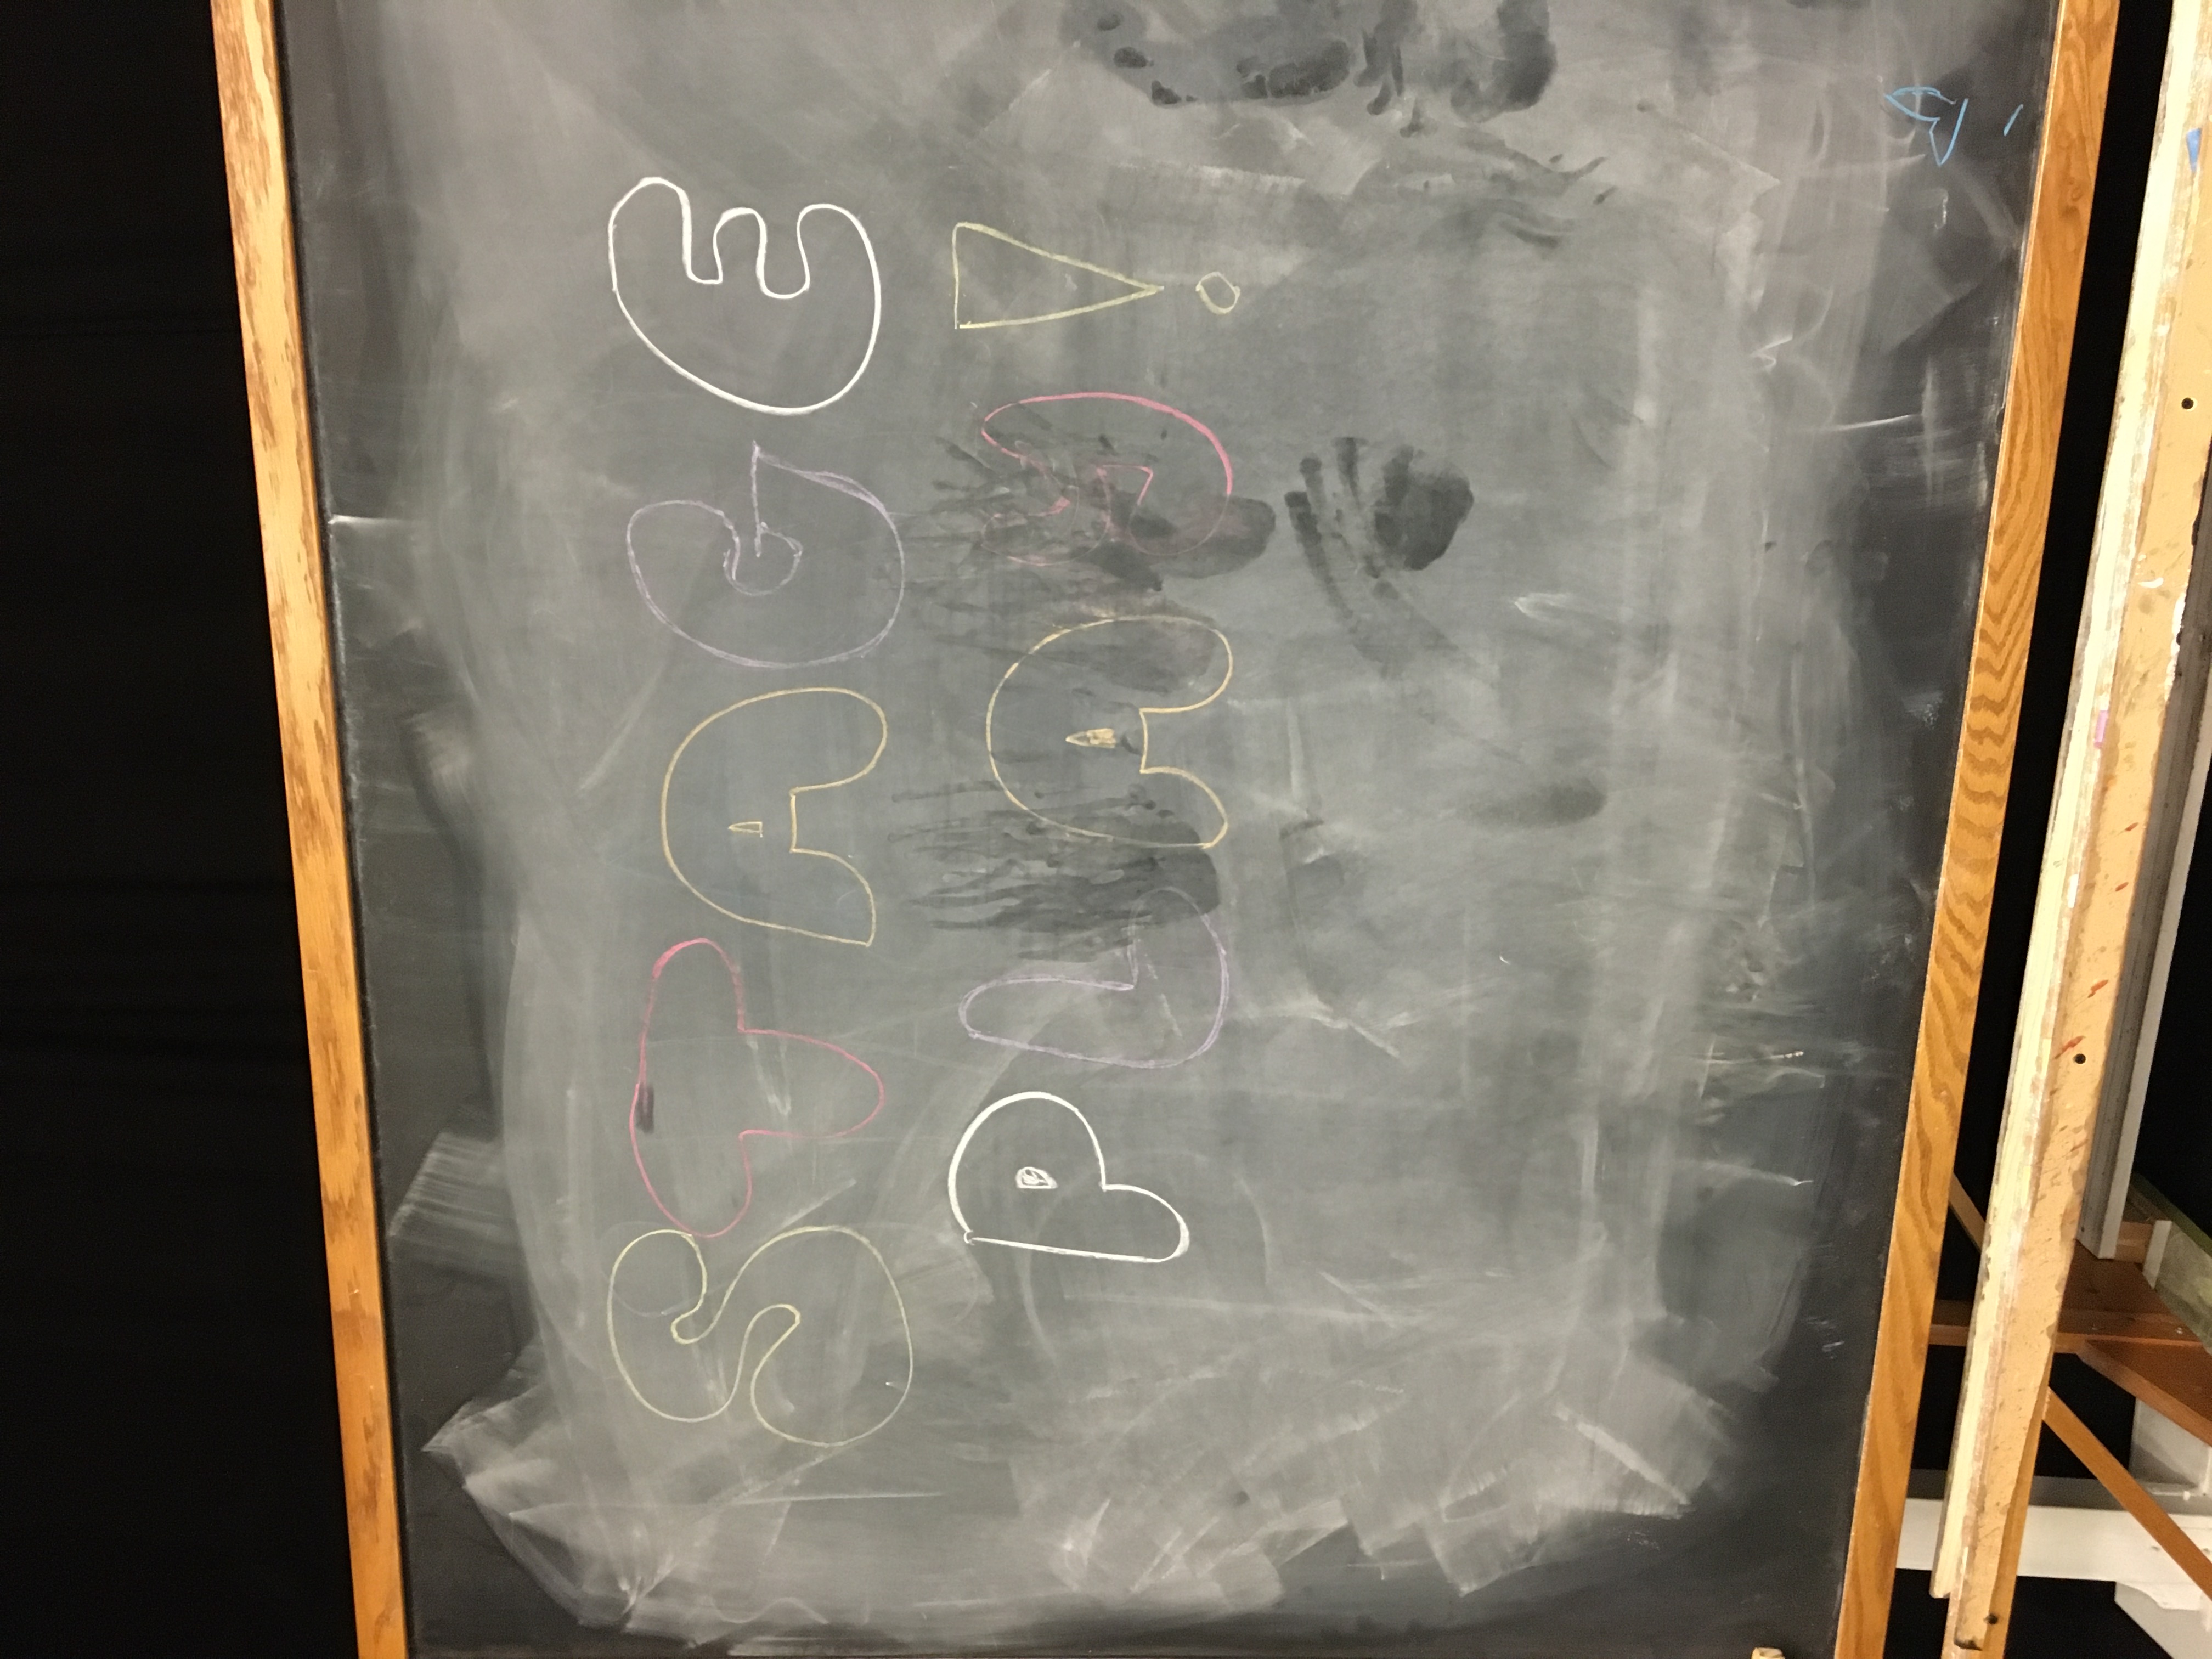 STAGE
PLAY!